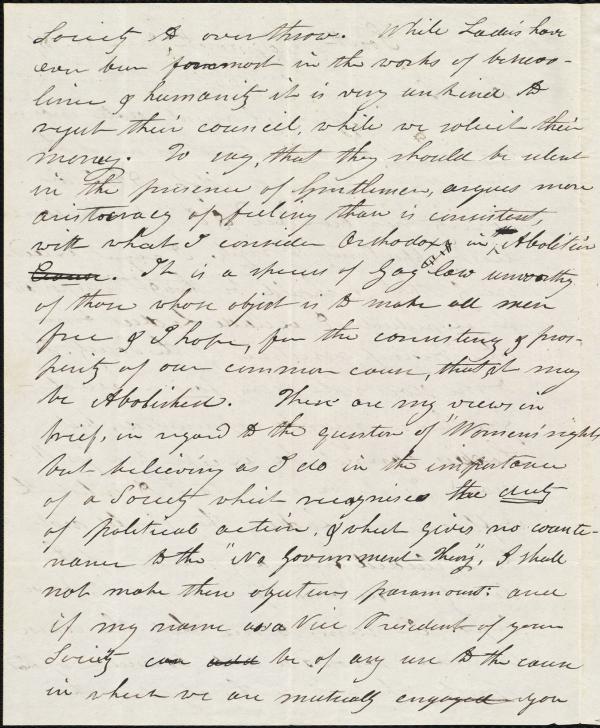 Society to overthrow. While Ladies have
ever been foremost in the works of benevo-
lence & humanity it is very unkind to
reject their council, while we solicit their
money. To say, that they should be silent
in the presence of Gentlemen, argues more
aristocracy of feeling than is consistent,
with what I consider Orthodoxy in the Abolition
Cause. It is a species of Gag law unworthy
of those whose object is to make all men
free & I hope, for the consistency & pros-
perity of our common cause, that it may
be Abolished. These are my views in
brief, in regard to the question of "Women's rights
but believing as I do in the importance
of a Society which recognises the duty
of political action, & which gives no counte-
nance to the "No Government Theory", I shall
not make these objections paramount: and
if my name as a Vice President of your
Society can add be of any use to the cause
in which we are mutually engaged you